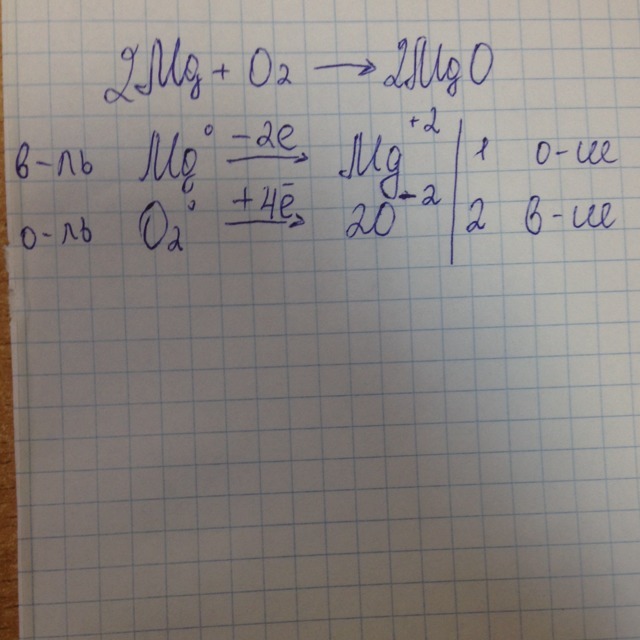 2Mg + O₂ → 2MgO
в-ль Mg⁰ −2e → Mg⁺² | 1 о-ие
о-ль O₂⁰ +4ē → 2O⁻² | 2 в-ие